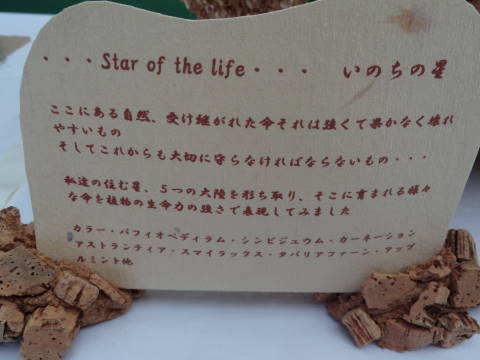 ・・・Star of the life・・・　いのちの星
ここにある自然、受け継がれた命それは強くて果かなく壊れ
やすいもの
そしてこれからも大切に守らなければならないもの・・・
私達の住む星、５つの大陸を形ち取り、そこに育まれる様々
な命を植物の生命力の強さで表現してみました
カラー・パフィオペディラム・シンビジュウム・カーネーション
アストランティア・スマイラックス・タバリアファーン・アップ
ルミント他